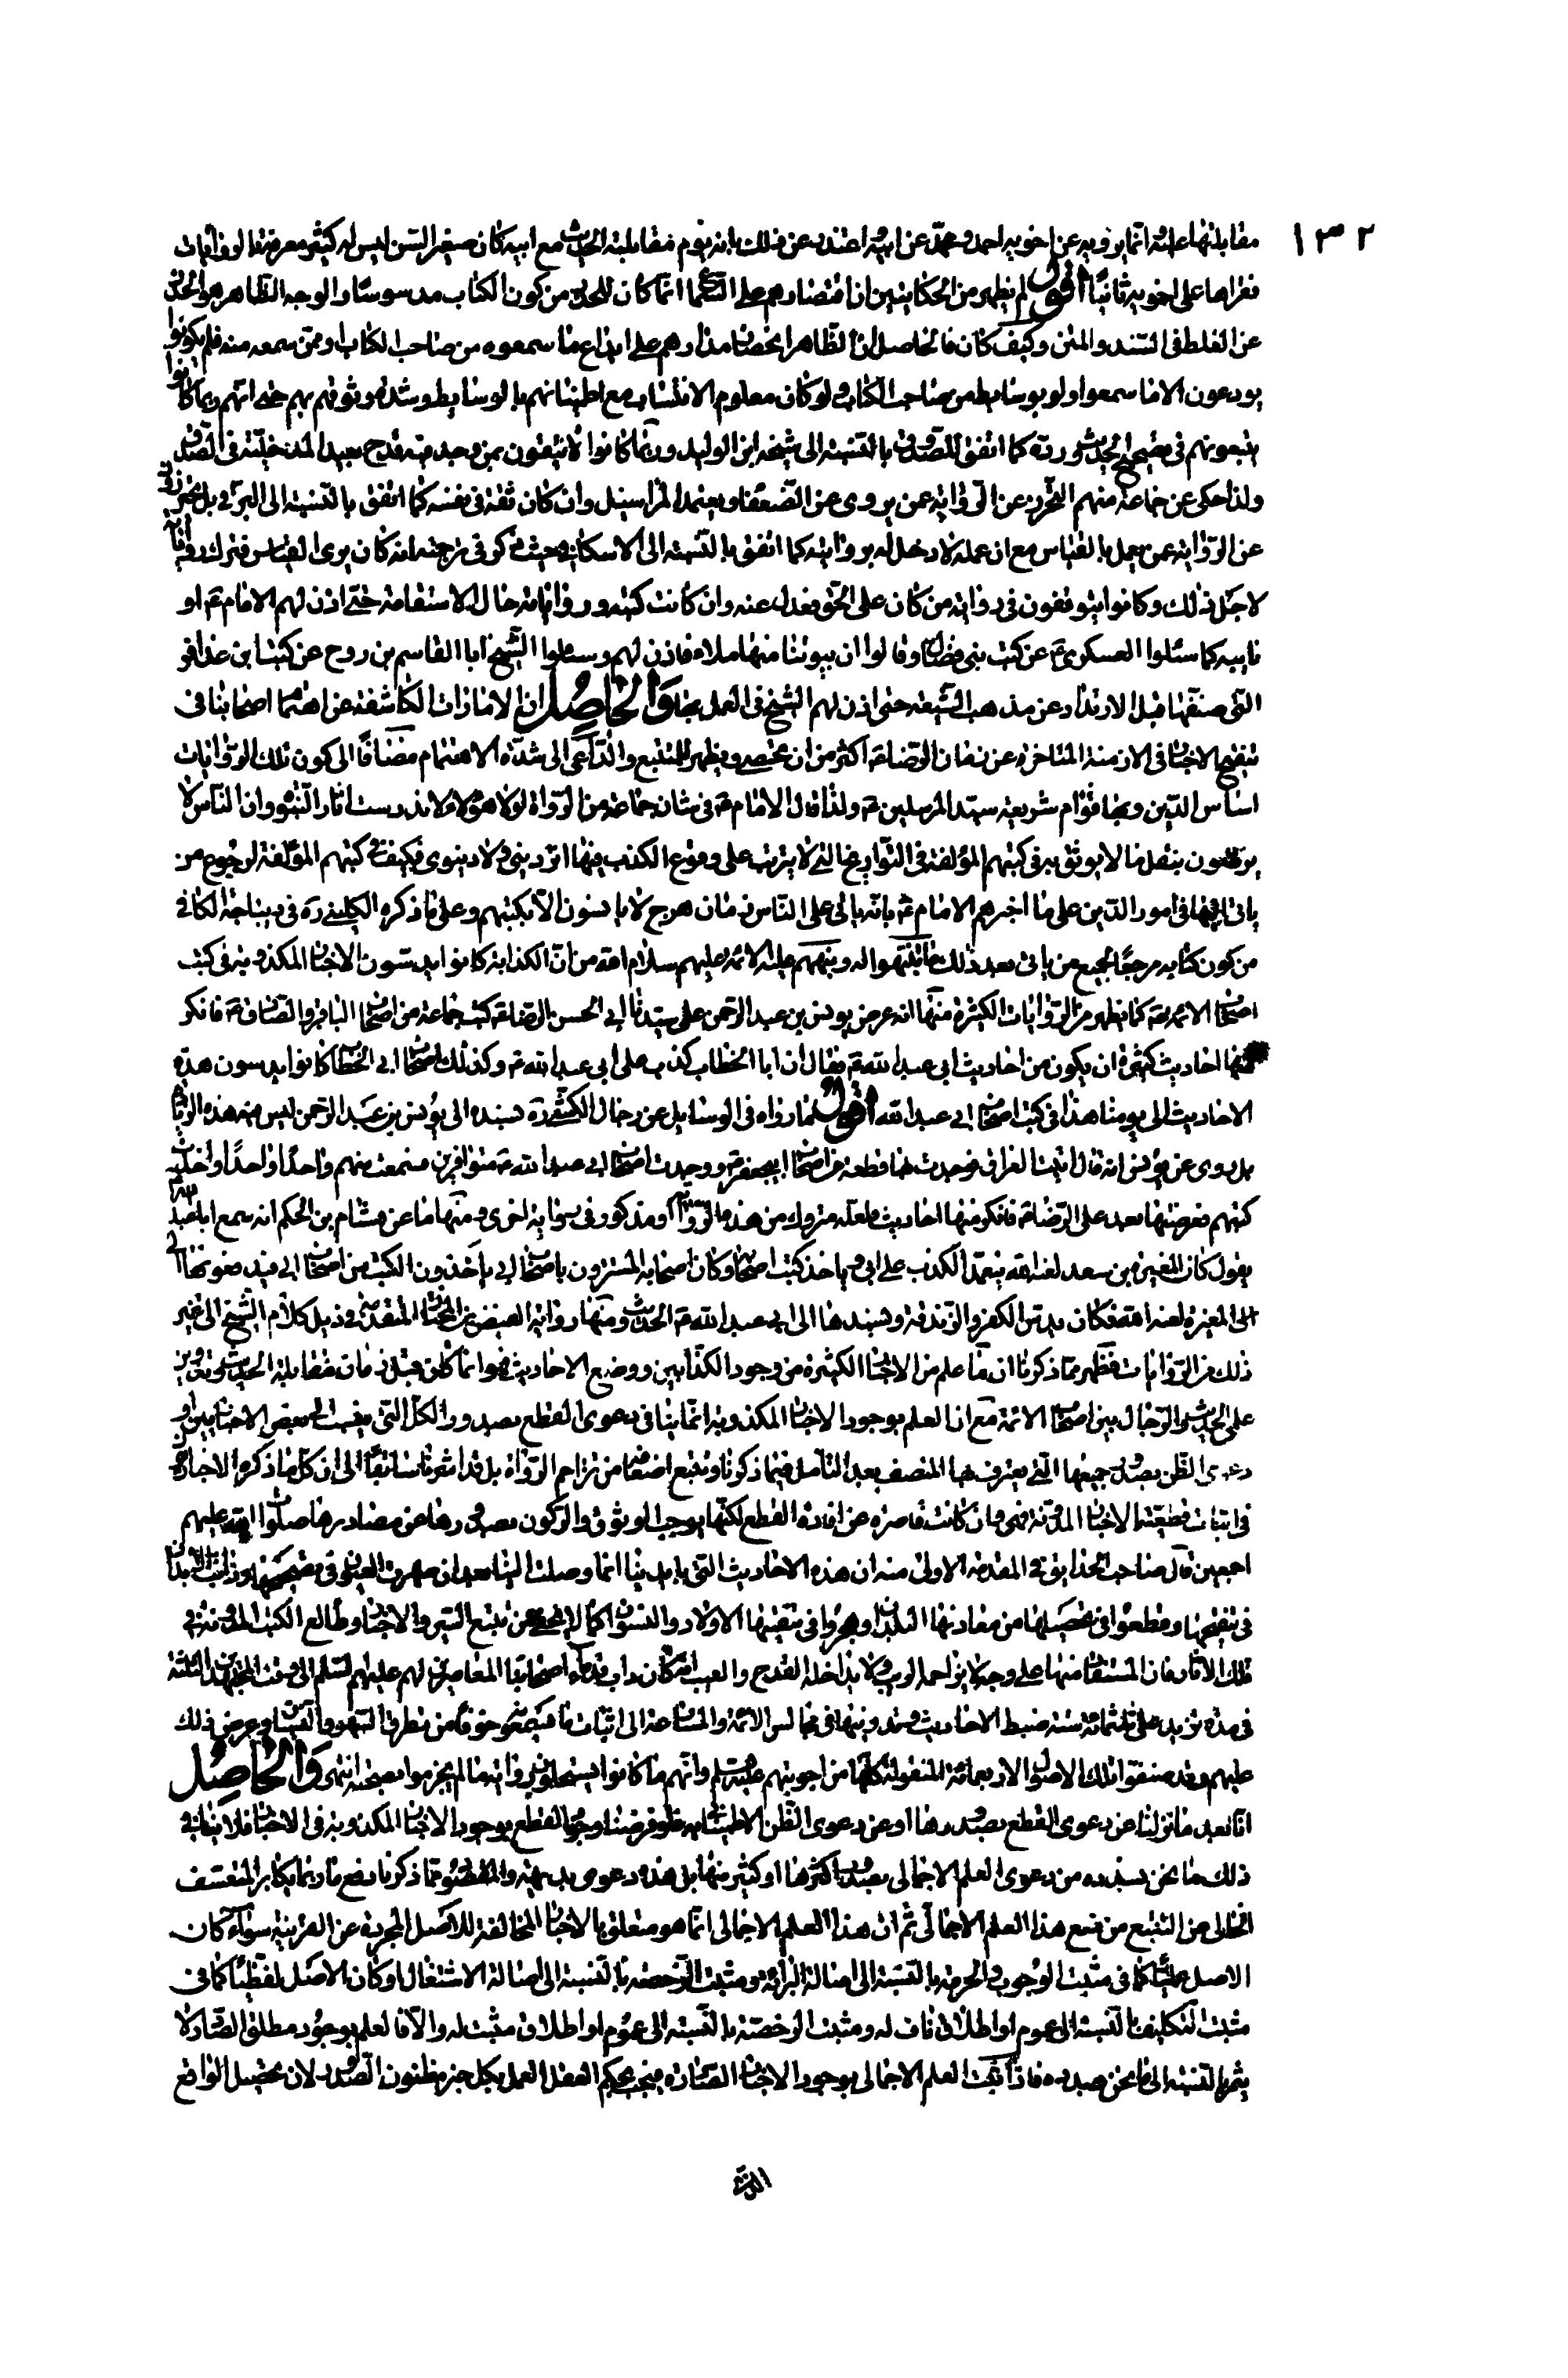 ١٣٢
مقابلتها عليه انما يرويه عن اخويه احمد ومحمد عن ابيه واعتذر عن ذلك بانه يوم مقابلته الحديث مع ابيه كان صغير السن ليس له كثير معرفة بالروايات
فقراها على اخويه ثانيا اقول لم يظهر من الحكايتين ان اقتصارهم على السماع انما كان للتحرز من كون الكتاب مدسوسا والوجه الظاهر هو التحرز
عن الغلط فى السند والمتن وكيف كان فالحاصل ان الظاهر انحصار مدارهم على ايداع ما سمعوه من صاحب الكتاب او ممن سمعه منه فلم يكونوا
يودعون الا ما سمعوا ولو بوسائط من صاحب الكتاب ولو كان معلوم الانتساب مع اطمينانهم بالوسايط وشدة وثوقهم بهم حتى انهم ربما كانوا
يتبعونهم فى تصحيح الحديث ورده كما اتفق للصدوق بالنسبة الى شيخه ابن الوليد وربما كانوا لا يثقون بمن يوجد فيه قدح بعيد المدخلية فى الصدق
ولذا حكى عن جماعة منهم التحرز عن الرواية عمن يروى عن الضعفاء ويعتمد المراسيل وان كان ثقة فى نفسه كما اتفق بالنسبة الى البرقى بل يتحرزون
عن الرواية عمن يعمل بالقياس مع ان عمله لا دخل له بروايته كما اتفق بالنسبة الى الاسكافى حيث ذكر فى ترجمته انه كان يرى القياس فترك رواياته
لاجل ذلك وكانوا يتوقفون فى رواية من كان على الحق فعدل عنه وان كانت كتبه ورواياته حال الاستقامة حتى اذن لهم الامام ع او
نايبه كما سئلوا العسكرى ع عن كتب بنى فضال وقالوا ان بيوتنا منها ملاء فاذن لهم وسئلوا الشيخ ابا القاسم بن روح عن كتب ابن عذافر
التى صنفها قبل الارتداد عن مذهب الشيعة حتى اذن لهم الشيخ فى العمل بها والحاصل ان الامارات الكاشفة عن اهتمام اصحابنا فى
تنقيح الاخبار فى الازمنة المتاخرة عن زمان الرضا ع اكثر من ان يحصى ويظهر للمتتبع والداعى الى شدة الاهتمام مضافا الى كون تلك الروايات
اساس الدين وبها قوام شريعة سيد المرسلين ص ولذا قال الامام ع فى شان جماعة من الرواة لولا هؤلاء لاندرست اثار النبوة وان الناس لا
يرضون بنقل ما لا يوثق به فى كتبهم المؤلفة فى التواريخ التى لا يترتب على وقوع الكذب فيها اثر دينى ولا دنيوى فكيف فى كتبهم المؤلفة لرجوع من
ياتى اليها فى امور الدين على ما اخبرهم الامام ع بانه ياتى على الناس زمان هرج لا يانسون الا بكتبهم وعلى ما ذكره الكلينى ره فى ديباجة الكافى
من كون كتابه مرجعا لجميع من ياتى بعد ذلك ما تنبهوا له ونبههم عليه الائمة عليهم سلام الله من ان الكذابة كانوا يدسون الاخبار المكذوبة فى كتب
اصحاب الائمة ع كما يظهر من الروايات الكثيرة منها انه عرض يونس بن عبد الرحمن على سيدنا ابى الحسن الرضا ع كتب جماعة من اصحاب الباقر والصادق ع فانكر
منها احاديث كثيرة ان يكون من احاديث ابى عبد الله ع وقال ان ابا الخطاب كذب على ابى عبد الله ع وكذلك اصحاب ابى الخطاب كانوا يدسون هذه
الاحاديث الى يومنا هذا فى كتب اصحاب ابى عبد الله اقول ما رواه فى الوسايل عن رجال الكشى ره بسنده الى يونس بن عبد الرحمن ليس فيه هذه الرواية
بل روى عن يونس انه قال اتيت العراق فوجدت بها قطعة من اصحاب ابى جعفر ع ووجدت اصحاب ابى عبد الله ع متوافرين فسمعت منهم واحدا واحدا واخذت
كتبهم فعرضتها بعد على الرضا ع فانكر منها احاديث ولعله متروك من هذه الرواية ومذكور فى رواية اخرى ومنها ما عن هشام بن الحكم انه سمع ابا عبد الله ع
يقول كان المغيرة بن سعد لعنه الله يتعمد الكذب على ابى وياخذ كتب اصحابه وكان اصحابه المستترون باصحاب ابى ياخذون الكتب من اصحاب ابى فيدفعونها
الى المغيرة لعنه الله فكان يدس الكفر والزندقة ويسندها الى ابى عبد الله ع الحديث ومنها رواية الفيض بن المختار المتقدمة فى ذيل كلام الشيخ الى غير
ذلك من الروايات فظهر مما ذكرنا ان ما علم من الاخبار الكثيرة من وجود الكذابين ووضع الاحاديث فهو انما كان قبل زمان مقابلة الحديث وتدوين
علمى الحديث والرجال بين اصحاب الائمة مع ان العلم بوجود الاخبار المكذوبة انما ينافى دعوى القطع بصدور الكل التى ينسب الى بعض الاخباريين او
دعوى الظن بصدور جميعها التى يعترف بها المنصف بعد التامل فيما ذكرنا وتتبع اضعافه من تراجم الرواة بل قد اشرنا سابقا الى ان كل ما ذكره الاخبارى
فى اثبات قطعية الاخبار المدونة فهى وان كانت قاصرة عن افادة القطع لكنها يوجب الوثوق والركون بصدورها عن مصادرها صلوات الله عليهم
اجمعين قال صاحب الحدايق فى المقدمة الاولى منه ان هذه الاحاديث التى بايدينا انما وصلت الينا بعد ان سهرت العيون فى تصحيحها وذابت الابدان
فى تنقيحها وقطعوا فى تحصيلها من معادنها البلدان وهجروا فى تنقيتها الاولاد والنسوان كما لا يخفى على من تتبع السير والاخبار وطالع الكتب المدونة فى
تلك الاثار فان المستفاد منها على وجه لا يزاحمه الريب ولا يداخله القدح والعيب انه كان داب قدماء اصحابنا المعاصرين لهم عليهم السلم الى وقت المحمدين الثلثة
فى مدة تزيد على ثلثمائة سنة ضبط الاحاديث وتدوينها فى مجالس الائمة والمسارعة الى اثبات ما يسمعونه خوفا من تطرق السهو والنسيان وعرض ذلك
عليهم وقد صنفوا تلك الاصول الاربعمائة المنقولة كلها من اجوبتهم عليهم السلم وانهم ما كانوا يستحلون رواية ما لم يجزموا بصحته انتهى والحاصل
انا بعد ما تنزلنا عن دعوى القطع بصدورها او عن دعوى الظن الاطمينانى به فلو فرضنا وجود القطع بوجود الاخبار المكذوبة فى الاخبار فلا ينافى
ذلك ما نحن بصدده من دعوى العلم الاجمالى بصدور اكثرها او كثير منها بل هذه دعوى بديهية والمقصود مما ذكرنا دفع ما ربما يكابر المتعسف
الخالى عن التتبع من منع هذا العلم الاجمالى ثم ان هذا العلم الاجمالى انما هو متعلق بالاخبار المخالفة للاصل المجردة عن القرينة سواء كان
الاصل عمليا كما فى مثبت الوجوب والحرمة بالنسبة الى اصالة البرائة ومثبت الرخصة بالنسبة الى اصالة الاشتغال او كان الاصل لفظيا كما فى
مثبت التكليف بالنسبة الى عموم او اطلاق ناف له ومثبت الرخصة بالنسبة الى عموم او اطلاق مثبت له والا فالعلم بوجود مطلق الصادر لا
يثمر بالنسبة الى ما نحن بصدده فاذا ثبت العلم الاجمالى بوجود الاخبار الصادرة فيجب بحكم العقل العمل بكل خبر مظنون الصدور لان تحصيل الواقع